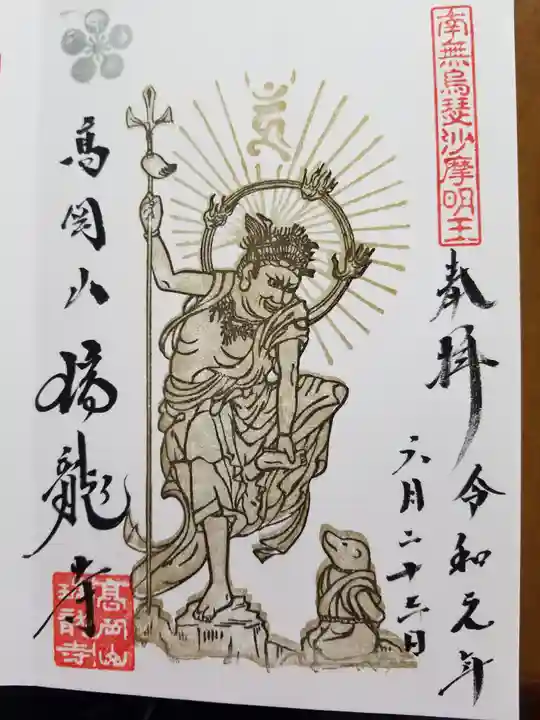 南無烏瑟沙摩明王
奉拝
令和元年
六月二十三日
高岡山
瑞龍寺
高岡山
瑞龍寺